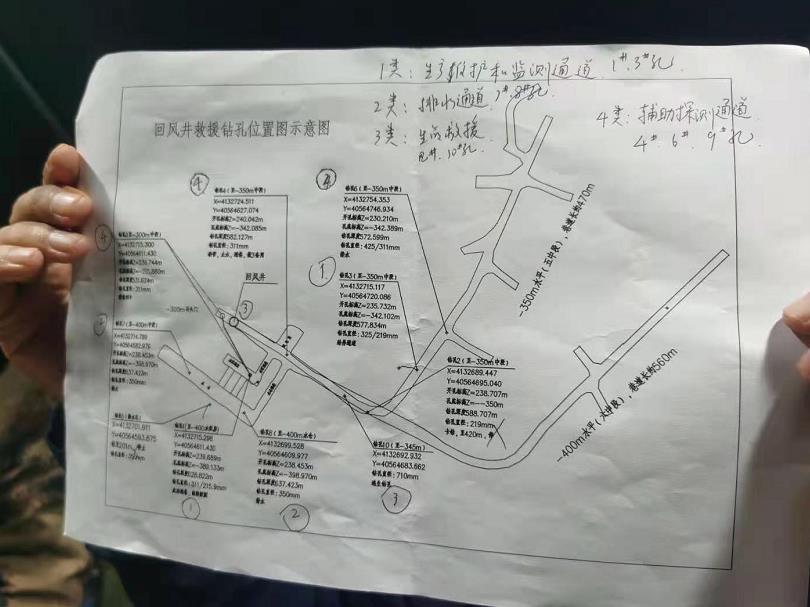 1类：生命救护和监测通道 1#.3#孔
2类：排水通道 7#.8#孔
3类：生命救援
10#孔
4类：辅助探测通道
4#.6#.9#孔
回风井救援钻孔位置图示意图
④
钻孔4（至-350m中段）
X=4132724.511
Y=40564627.074
开孔标高Z=240.042m
孔底标高Z=-342.085m
钻孔深度582.127m
钻孔直径：311mm
④
钻孔6（至-350m中段）
X=4132754.353
Y=40564746.934
开孔标高Z=230.210m
孔底标高Z=-342.389m
钻孔深度572.599m
钻孔直径：425/311mm
①
钻孔3（至-350m中段）
X=4132715.117
Y=40564720.086
开孔标高Z=235.732m
孔底标高Z=-342.102m
钻孔深度577.834m
钻孔直径：325/219mm
X=4132715.300
Y=40564611.430
钻孔直径：311mm
回风井
③
钻孔7（至-400m中段）
X=4132714.789
Y=40564582.976
开孔标高Z=238.453m
孔底标高Z=-398.970m
钻孔深度637.423m
钻孔直径：350mm
钻孔2（至-350m中段）
X=4132689.447
Y=40564695.040
开孔标高Z=238.707m
孔底标高Z=-350m
钻孔深度588.707m
钻孔直径：219mm
X=4132701.911
Y=40564593.875
X=4132715.298
Y=40564611.430
开孔标高Z=239.689m
孔底标高Z=-389.133m
钻孔深度628.822m
钻孔直径：311/215.9mm
①
钻孔8（至-400m水仓）
X=4132699.528
Y=40564609.977
开孔标高Z=238.453m
孔底标高Z=-398.970m
钻孔深度637.423m
钻孔直径：350mm
②
钻孔10（至-345m）
X=4132692.932
Y=40564683.662
钻孔直径：710mm
逃生钻孔
③
-350m水平（五中段），巷道长约470m
-400m水平（六中段），巷道长约560m